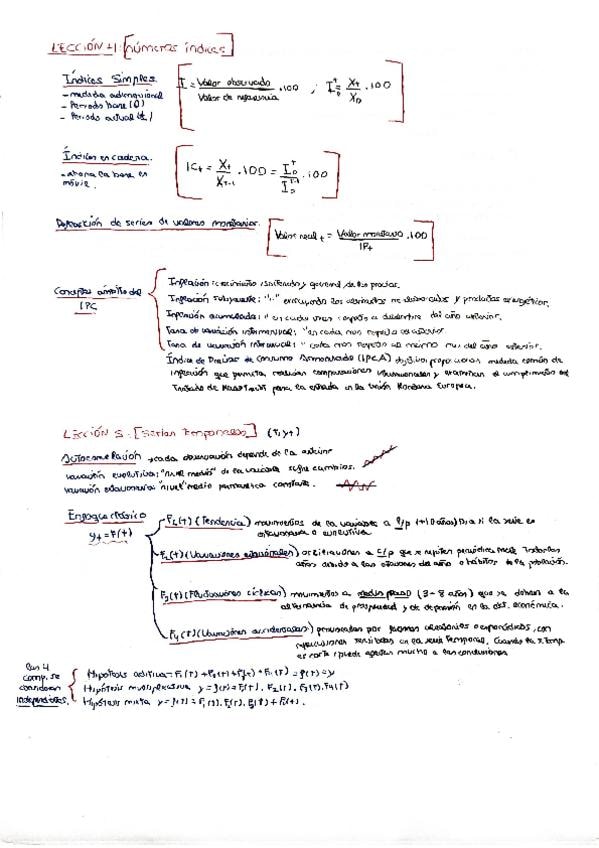 LECCIÓN 4: [números índices]
Índices Simples.
- medida adimensional
- Periodo base (0)
- Periodo actual (t)
I = Valor observado / Valor de referencia . 100 ; I₀ᵗ = Xt / X0 . 100
Índices en cadena.
- ahora la base es móvil.
ICt = Xt / Xt-1 . 100 = I₀ᵗ / I₀ᵗ⁻¹ . 100
Deflactación de series de valores monetarios.
Valor real t = Valor monetario / IPt . 100
Conceptos ámbito del IPC
Inflación: crecimiento sostenido y general de los precios.
Inflación subyacente: "-" excluyendo los alimentos no elaborados y productos energéticos.
Inflación acumulada: " en cada mes respecto a diciembre del año anterior.
Tasa de variación intermensual: " en cada mes respecto al anterior
Tasa de variación interanual: " cada mes respecto al mismo mes del año anterior.
Índice de Precios de Consumo Armonizado (IPCA) objetivo proporcionar medida común de
inflación que permita realizar comparaciones internacionales y examinar el cumplimiento del
Tratado de Maastricht para la entrada en la Unión Monetaria Europea.
LECCIÓN 5: [Series Temporales] (t, yt)
Autocorrelación → cada observación depende de la anterior
variación evolutiva: "nivel medio" de la variable sufre cambios.
variación estacionaria: "nivel" medio permanece constante.
Enfoque clásico
yt = f(t)
F1(t) (Tendencia) movimientos de la variable a l/p (+10 años) si la serie es
estacionaria o evolutiva
F2(t) (Variaciones estacionales) oscilaciones a c/p que se repiten periódicamente todos los
años debido a las estaciones del año o hábitos de la población.
F3(t) (Fluctuaciones cíclicas) movimientos a medio plazo (3-8 años) que se deben a la
alternancia de prosperidad y de depresión en la act. económica.
F4(t) (Variaciones accidentales) provocadas por factores aleatorios o esporádicos, con
repercusiones sensibles en la serie temporal. Cuando la s. temp.
es corta puede afectar mucho a las conclusiones
Los 4 comp. se consideran independientes.
Hipótesis aditiva = F1(t) + F2(t) + F3(t) + F4(t) = f(t) = y
Hipótesis multiplicativa y = f(t) = F1(t) . F2(t) . F3(t) . F4(t)
Hipótesis mixta y = f(t) = F1(t) . F2(t) . F3(t) + F4(t).